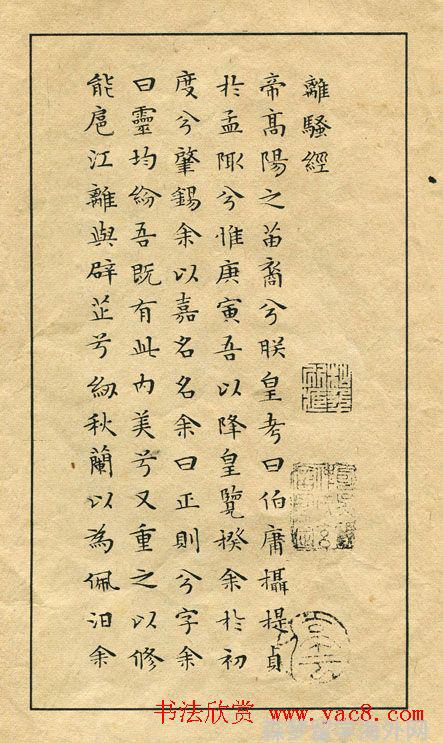 離騷經
帝高陽之苗裔兮朕皇考曰伯庸攝提貞
於孟陬兮惟庚寅吾以降皇覽揆余於初
度兮肇錫余以嘉名名余曰正則兮字余
曰靈均紛吾既有此內美兮又重之以修
能扈江離與辟芷兮紉秋蘭以為佩汩余
书法欣赏 www.yac8.com